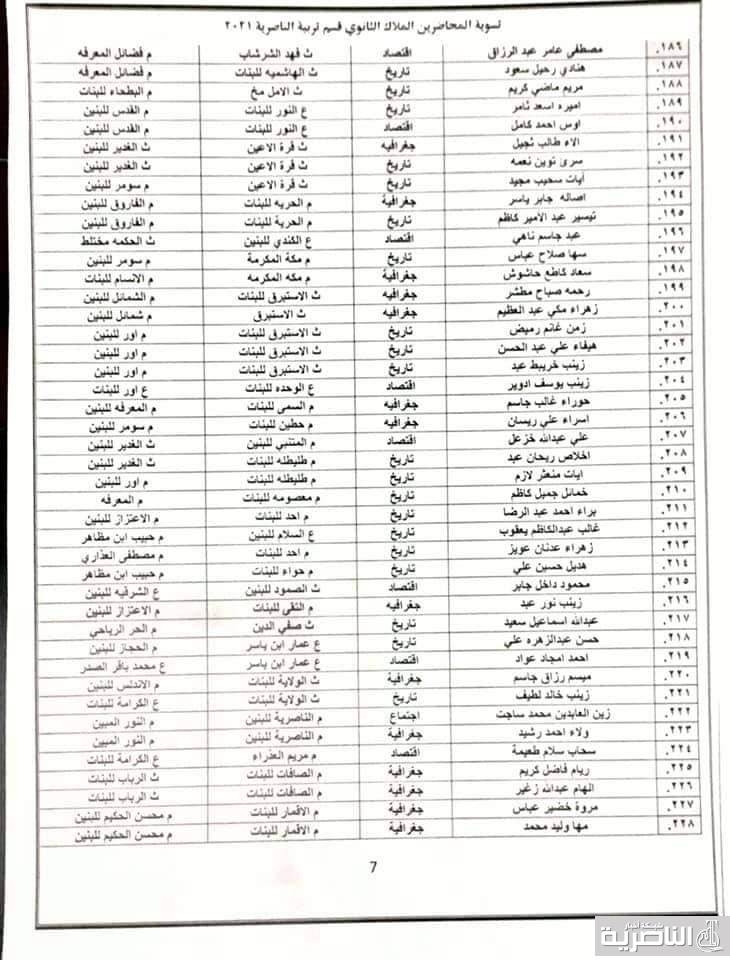 تسوية المحاضرين الملاك الثانوي قسم تربية الناصرية ٢٠٢١
١٨٦. مصطفى عامر عبد الرزاق اقتصاد ث فهد الشرشاب م فضائل المعرفه
١٨٧. هنادي رحيل سعود تاريخ ث الهاشميه للبنات م فضائل المعرفه
١٨٨. مريم ماضي كريم تاريخ ث الامل مخ م البطحاء للبنات
١٨٩. اميره اسعد ثامر تاريخ ع النور للبنات م القدس للبنين
١٩٠. اوس احمد كامل اقتصاد ع النور للبنات م القدس للبنين
١٩١. الاء طالب ثجيل جغرافيه ث قرة الاعين ث الغدير للبنين
١٩٢. سرى نوين نعمه تاريخ ث قرة الاعين ث الغدير للبنين
١٩٣. آيات سحيب مجيد تاريخ ث قرة الاعين م سومر للبنين
١٩٤. اصاله جابر ياسر جغرافية م الحريه للبنات م الفاروق للبنين
١٩٥. تيسير عبد الأمير كاظم تاريخ م الحرية للبنات م الفاروق للبنين
١٩٦. عبد جاسم ناهي اقتصاد ع الكندي للبنين ث الحكمه مختلط
١٩٧. سها صلاح عباس تاريخ م مكة المكرمة م سومر للبنين
١٩٨. سعاد كاطع حاشوش جغرافية م مكه المكرمه م الانسام للبنات
١٩٩. رحمه صباح مطشر جغرافيه ث الاستبرق للبنات م الشمائل للبنين
٢٠٠. زهراء مكي عبد العظيم جغرافيه ث الاستبرق م شمائل للبنين
٢٠١. زمن غانم رميض تاريخ ث الاستبرق للبنات م اور للبنين
٢٠٢. هيفاء علي عبد الحسن تاريخ ث الاستبرق للبنات م اور للبنين
٢٠٣. زينب خريبط عبد تاريخ ث الاستبرق للبنات م اور للبنين
٢٠٤. زينب يوسف ادوير اقتصاد ع الوحده للبنات ع اور للبنات
٢٠٥. حوراء غالب جاسم جغرافيه م السمى للبنات م المعرفه للبنين
٢٠٦. اسراء علي ريسان جغرافيه م حطين للبنات م سومر للبنين
٢٠٧. علي عبدالله خزعل اقتصاد م المتنبي للبنين ث الغدير للبنين
٢٠٨. اخلاص ريحان عبد تاريخ م طليطله للبنات ث الغدير للبنين
٢٠٩. ايات منعثر لازم تاريخ م طليطله للبنات م اور للبنين
٢١٠. خمائل جميل كاظم تاريخ م معصومه للبنات م المعرفه
٢١١. براء احمد عبد الرضا تاريخ م احد للبنات م الاعتزاز للبنين
٢١٢. غالب عبدالكاظم يعقوب تاريخ ع السلام للبنين م حبيب ابن مظاهر
٢١٣. زهراء عدنان عويز تاريخ م احد للبنات م مصطفى العذاري
٢١٤. هديل حسين علي تاريخ م حواء للبنات م حبيب ابن مظاهر
٢١٥. محمود داخل جابر اقتصاد ث الصمود للبنين ع الشرقيه للبنين
٢١٦. زينب نور عبد جغرافيه م التقى للبنات م الاعتزاز للبنين
٢١٧. عبدالله اسماعيل سعيد تاريخ ث صفي الدين م الحر الرياحي
٢١٨. حسن عبدالزهره علي تاريخ ع عمار ابن ياسر م الحجاز للبنين
٢١٩. احمد امجاد عواد اقتصاد ع عمار ابن ياسر ع محمد باقر الصدر
٢٢٠. ميسم رزاق جاسم جغرافية ث الولاية للبنات م الاندلس للبنين
٢٢١. زينب خالد لطيف تاريخ ث الولاية للبنات ع الكرامة للبنات
٢٢٢. زين العابدين محمد ساجت اجتماع م الناصرية للبنين م النور المبين
٢٢٣. ولاء احمد رشيد جغرافية م الناصرية للبنين م النور المبين
٢٢٤. سحاب سلام طعيمة اقتصاد م مريم العذراء ع الكرامة للبنات
٢٢٥. ريام فاضل كريم جغرافية م الصافات للبنات ث الرباب للبنات
٢٢٦. الهام عبدالله زغير جغرافية م الصافات للبنات ث الرباب للبنات
٢٢٧. مروة خضير عباس جغرافية م الاقمار للبنات م محسن الحكيم للبنين
٢٢٨. مها وليد محمد جغرافية م الاقمار للبنات م محسن الحكيم للبنين
7
شبكة أخبار
الناصرية